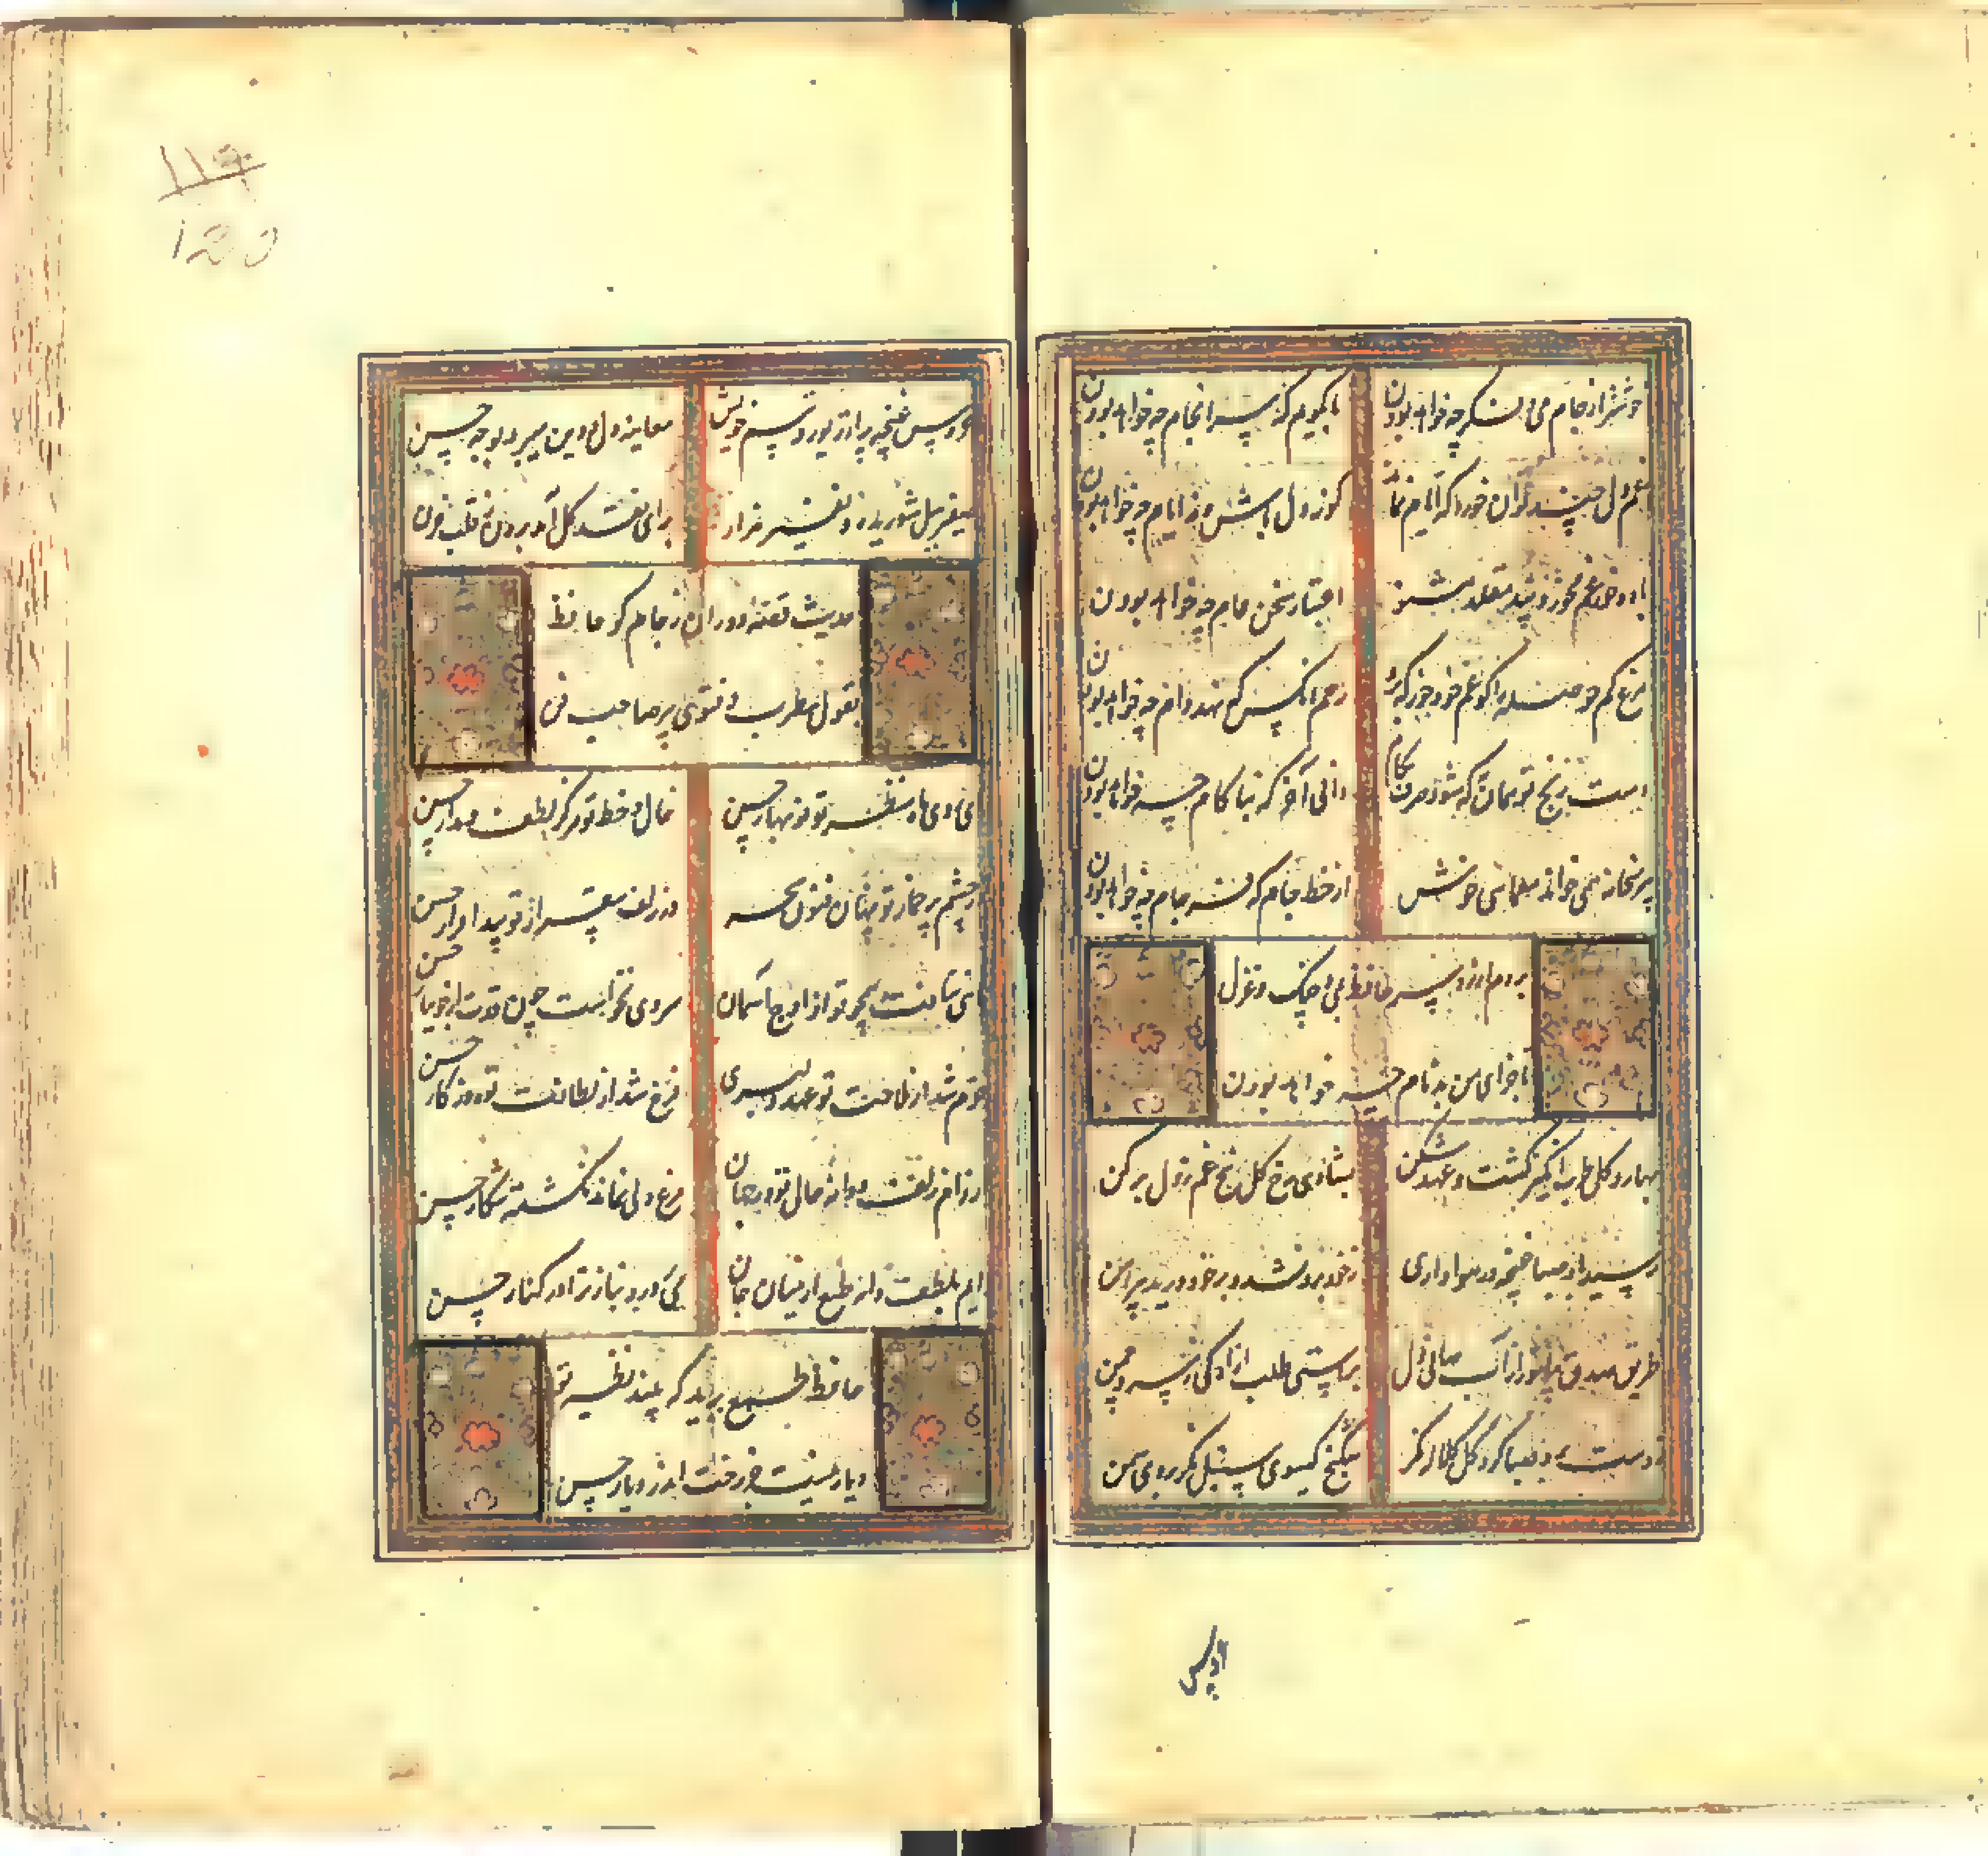 خوشتر از جام می و فکر چه خواهد بودن تا بگویم که سرانجام چه خواهد بودن
غم دل چند توان خورد که ایام نماند کو نه دل باش و نه ایام چه خواهد بودن
باده خور غم مخور و پند مقلد مشنو اعتبار سخن عام چه خواهد بودن
مرغ کم حوصله را کو غم خود خور که برو رحم آنکس که نهد دام چه خواهد بودن
دست رنج تو همان به که شود صرف بکام دانی آخر که بناکام چه خواهد بودن
پیر میخانه همی خواند معمایی خوش از خط جام که فرجام چه خواهد بودن
بردم از ره دل حافظ بدف و چنگ و غزل
تا جزای من بدنام چه خواهد بودن
بهار و گل طرب انگیز گشت و عهد شکن بشادی رخ گل بیخ غم ز دل برکن
رسید باد صبا غنچه در هواداری ز خود برون شد و بر خود درید پیراهن
طریق صدق بیاموز از آب صافی دل براستی طلب آزادگی ز سرو چمن
ز دست برد صبا گرد گل کلاله نگر شکنج گیسوی سنبل نگر بروی سمن
عروس
۱۱۹
۱۵۵
عروس غنچه بدین زیور و تبسم خویش معاینه دل و دین میبرد بوجه حسن
صفیر بلبل شوریده و نفیر هزار برای نقد گل آمد برون ز قلب حزن
حدیث قصه دوران ز جام گو حافظ
بقول مطرب و فتوی پیر صاحب فن
ای روی ماه منظر تو نوبهار حسن خال و خط تو مرکز لطف و مدار حسن
در چشم پر خمار تو پنهان فنون سحر در زلف بیقرار تو پیدا قرار حسن
ماهی نتافت همچو تو از اوج آسمان سروی نخاست چون قدت از جویبار حسن
خرم شد از ملاحت تو عهد دلبری فرخ شد از لطافت تو روزگار حسن
از دام زلف و دانه خال تو در جهان مرغ دلی نماند نگشته شکار حسن
دایم بلطف دایه طبع از میان جان می‌پرورد بناز ترا در کنار حسن
حافظ طمع برید که بیند نظیر تو
دیار نیست جز رخت اندر دیار حسن